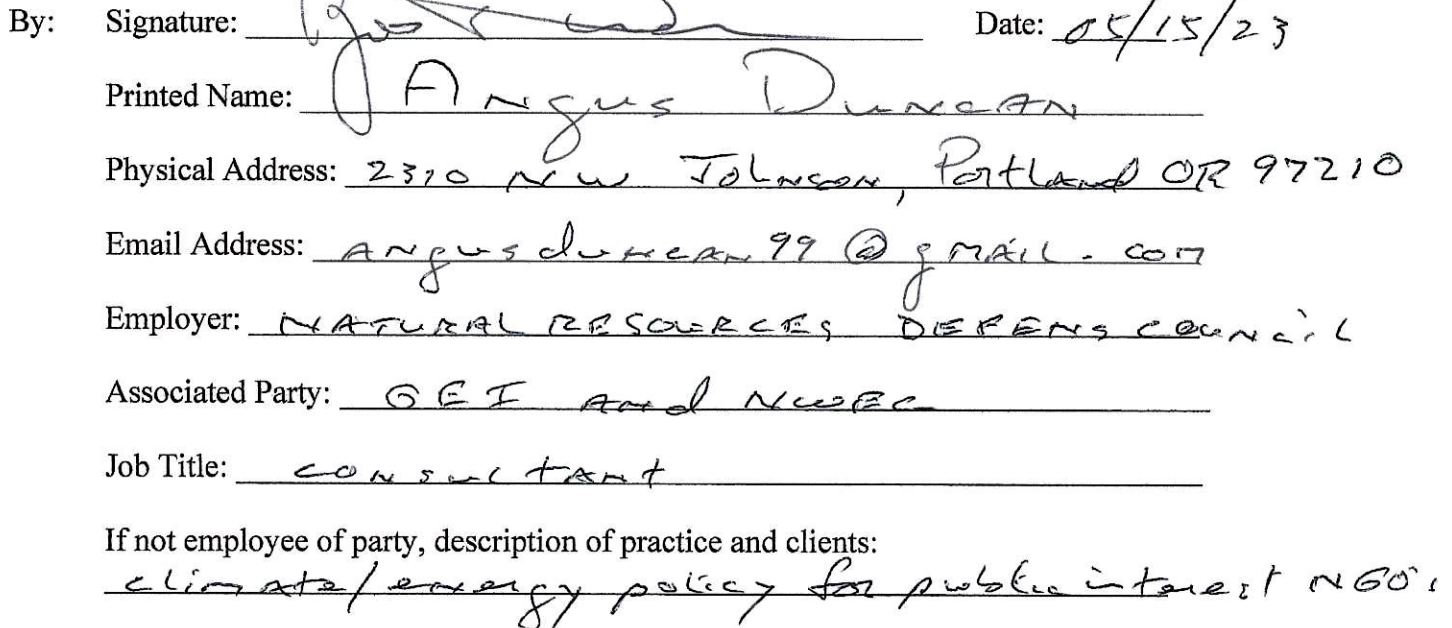 By: Signature: Date: 05/15/23
Printed Name: Angus Duncan
Physical Address: 2310 NW Johnson, Portland OR 97210
Email Address: Angusduncan99@gmail.com
Employer: NATURAL RESOURCES DEFENS COUNCIL
Associated Party: GEI and NWEC
Job Title: consultant
If not employee of party, description of practice and clients:
climate/energy policy for public interest NGO's